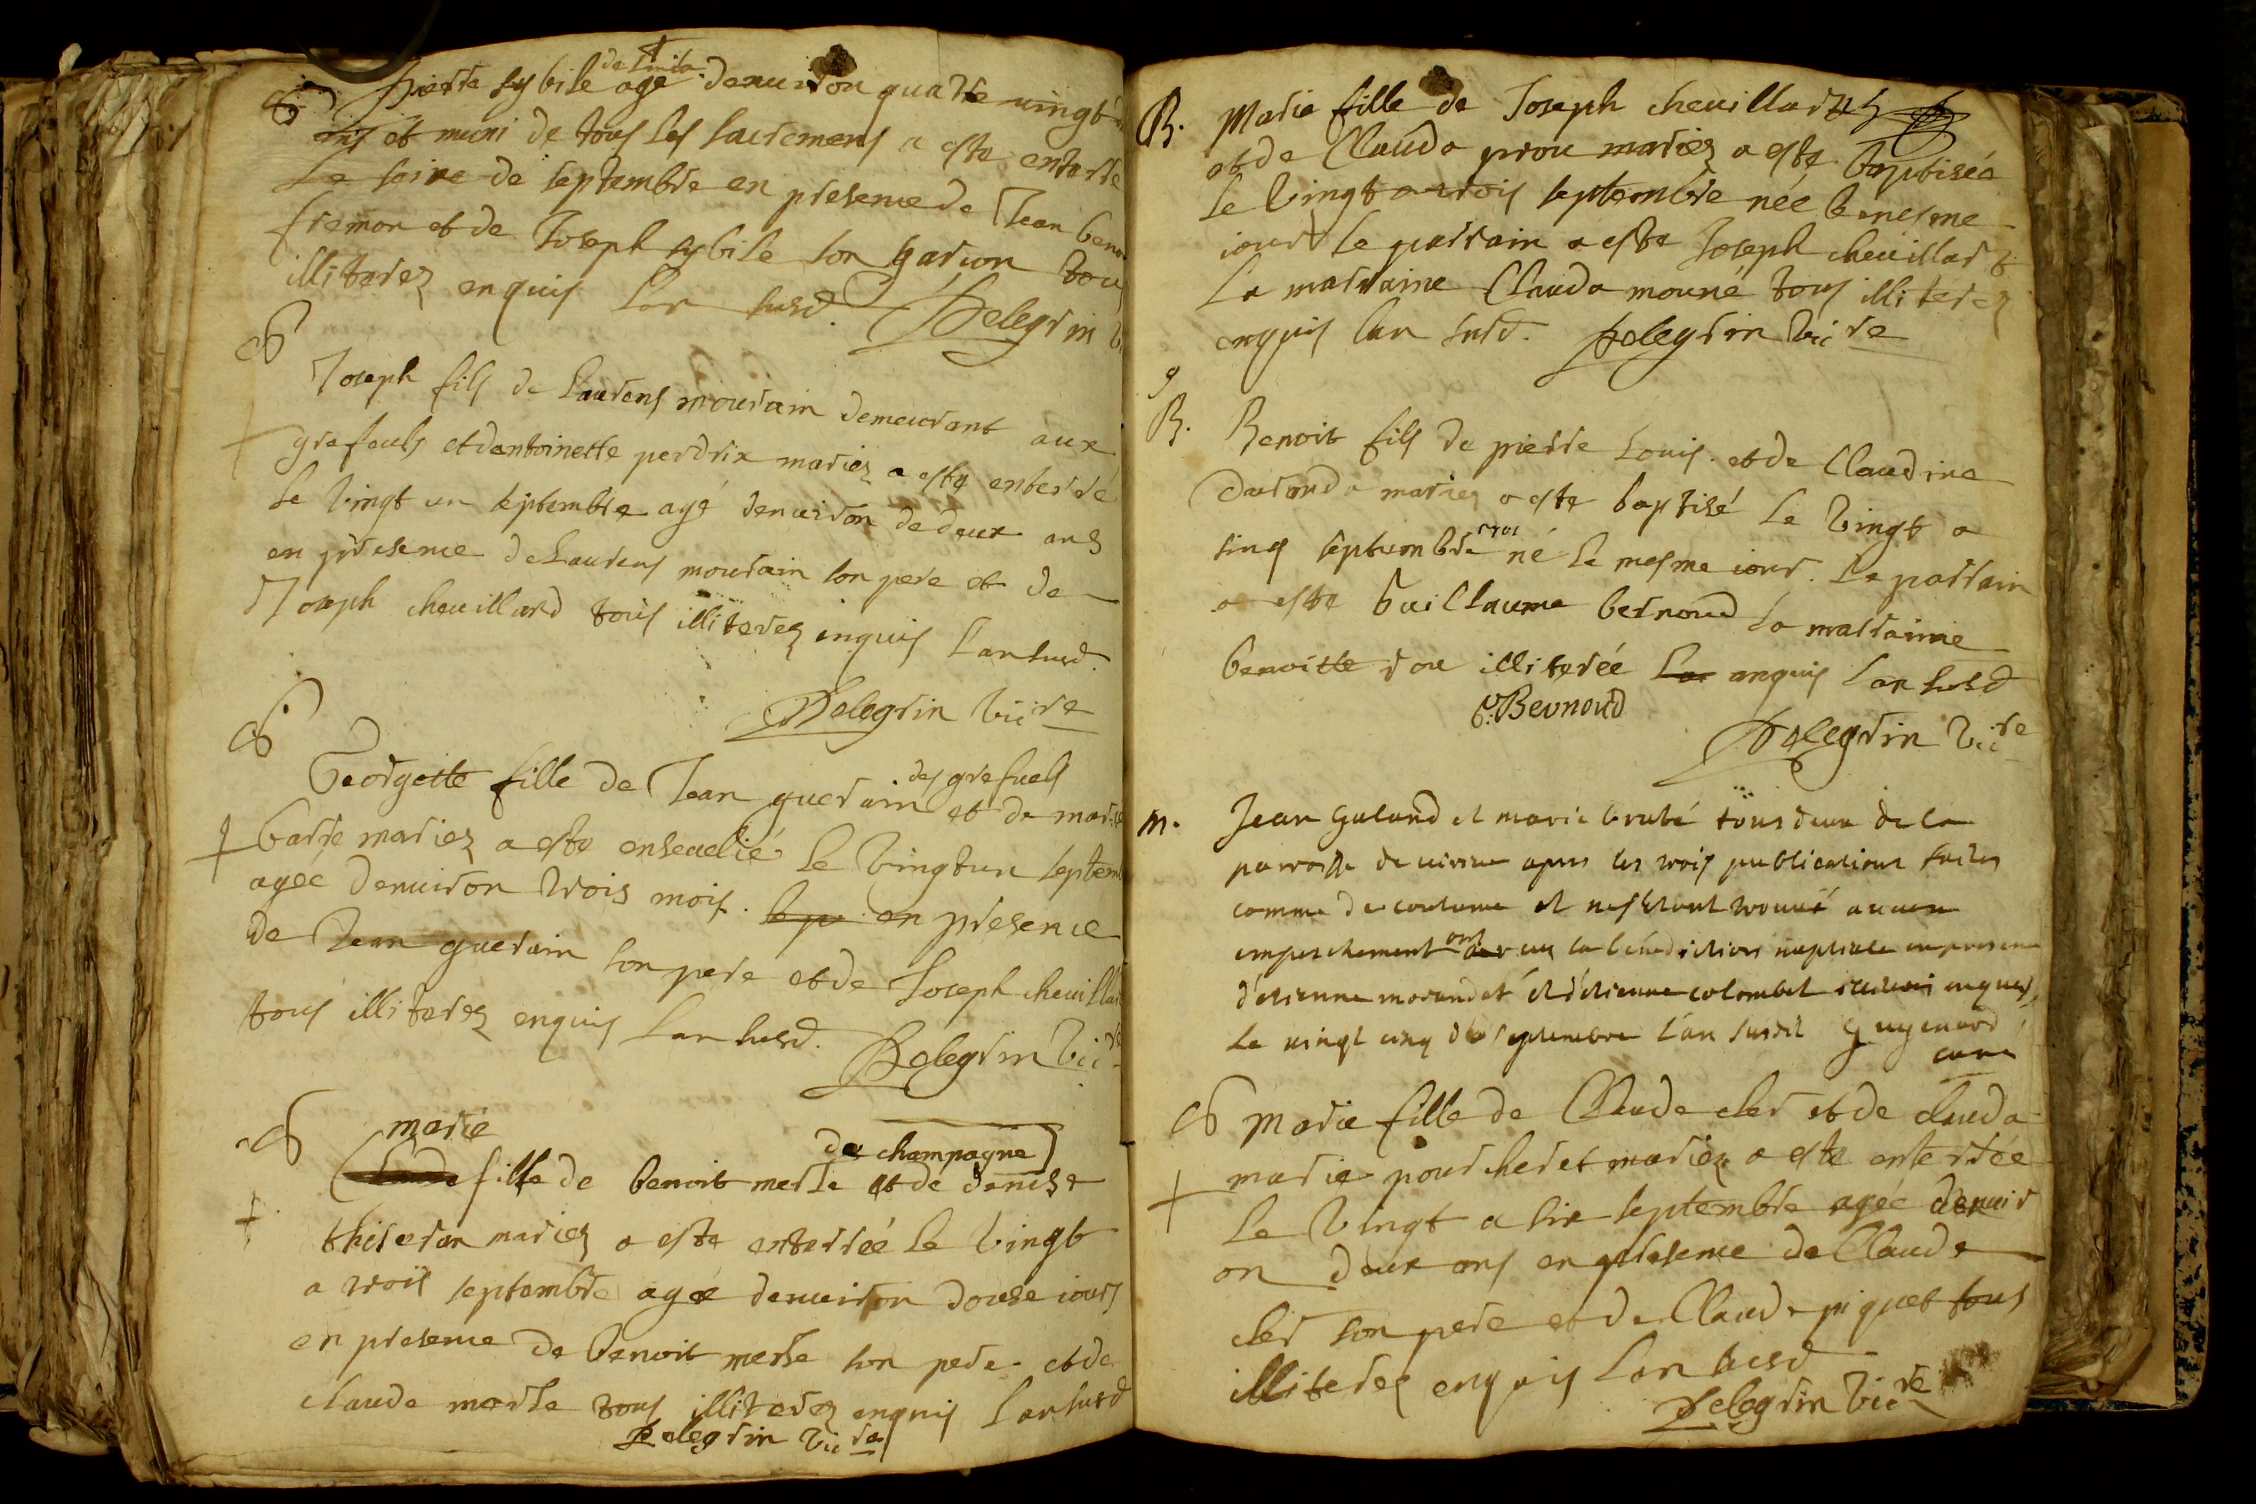 de
S Pierre sybile agé denuiron quatre vingt
ans et muni de tous les sacremens a este enterré
Le saise de septembre en presence de Jean beno
fremon et de Joseph sybile son garson tous
illiterez enquis L'an susd. Pelegrin vi
S
Joseph fils de Laurens mourain demeurant aux
grefouls et dantoinette perdrix mariez a este enterré
Le vingt un septembre agé denuiron de deux ans
en presence de Laurens mourain son pere et de
Joseph cheuillard tous illiterez inquis L'an susd.
Pelegrin vicre
S.
des grefuels
Georgette fille de Jean guerain et de marie
barre mariez a este enseuelié le vingtun septem
agée denuiron trois mois. en presence
de Jean guerain son pere et de Joseph cheuillar
tous illiterez enquis L'an susd. Pelegrin vicre
S marie
de champagne
fille de benoit merle et de denise
thiseran mariez a este enterrée Le vingt
a trois septembre agée denuiron douse iours
en presence de benoit merle son pere et de
claude merle tous illiterez enquis L'an susd
Pelegrin vicre
B. Marie fille de Joseph cheuillard
et de Clauda prou mariez a este baptiséa
Le vingt a trois septembre née le mesme
iour Le parrain a este Joseph cheuillard
La marraine Clauda mouné tous illiterez
enquis l'an susd. Pelegrin vicre
9
B. Benoit fils de pierre Louis et de Claudine
duranda mariez a este baptisé Le vingt a
1701
sinq septembre né le mesme iour. Le parrain
a este Guillaume bernoud La marraine
benoitte rou illiterée enquis L'an susd
G. Bernoud
Pelegrin vicre
m. Jean Galand et marie brubé tous deux de la
parroisse de apres les trois publications faites
comme de coutume et nestant trouué aucun
ont
empeschement receu la bénédiction nuptiale en presence
d'etienne morandet et d'etienne colombet enquis
Le vingt cinq de septembre L'an susdit Guyenard
curé
S Marie fille de Claude cler et de clauda
marie pourcheret mariez a este enterrée
Le vingt a six septembre agée denuir
on deux ans en presence de Claude
cler son pere et de Claude piquet tous
illiterez enquis L'an susd
Pelegrin vicre